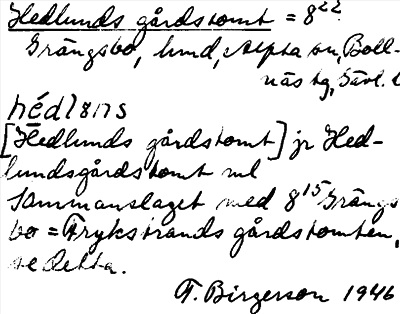 Hedlunds gårdstomt = 8²²
Grängsbo, hmd, Alfta sn, Boll-
näs tg, Gävl. l
hédl
[Hedlunds gårdstomt] jr Hed-
lundsgårdstomt ml
Sammanslaget med 8¹⁵ Grängs
bo = Frykstrands gårdstomten,
se detta.
F. Birgerson 1946